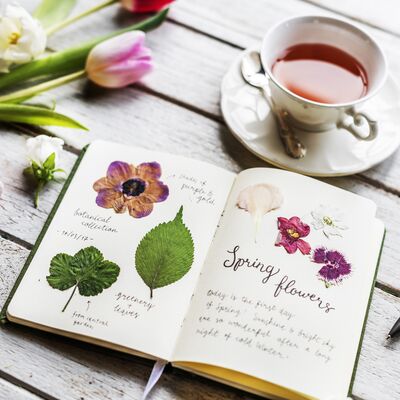 shade of
purple &
gold
botanical
collection
greenery
+
leaves
from central
garden
Spring flowers
today is the first day
of spring! Sunshine is bright sky
are so wonderful after a long
night of cold winter.